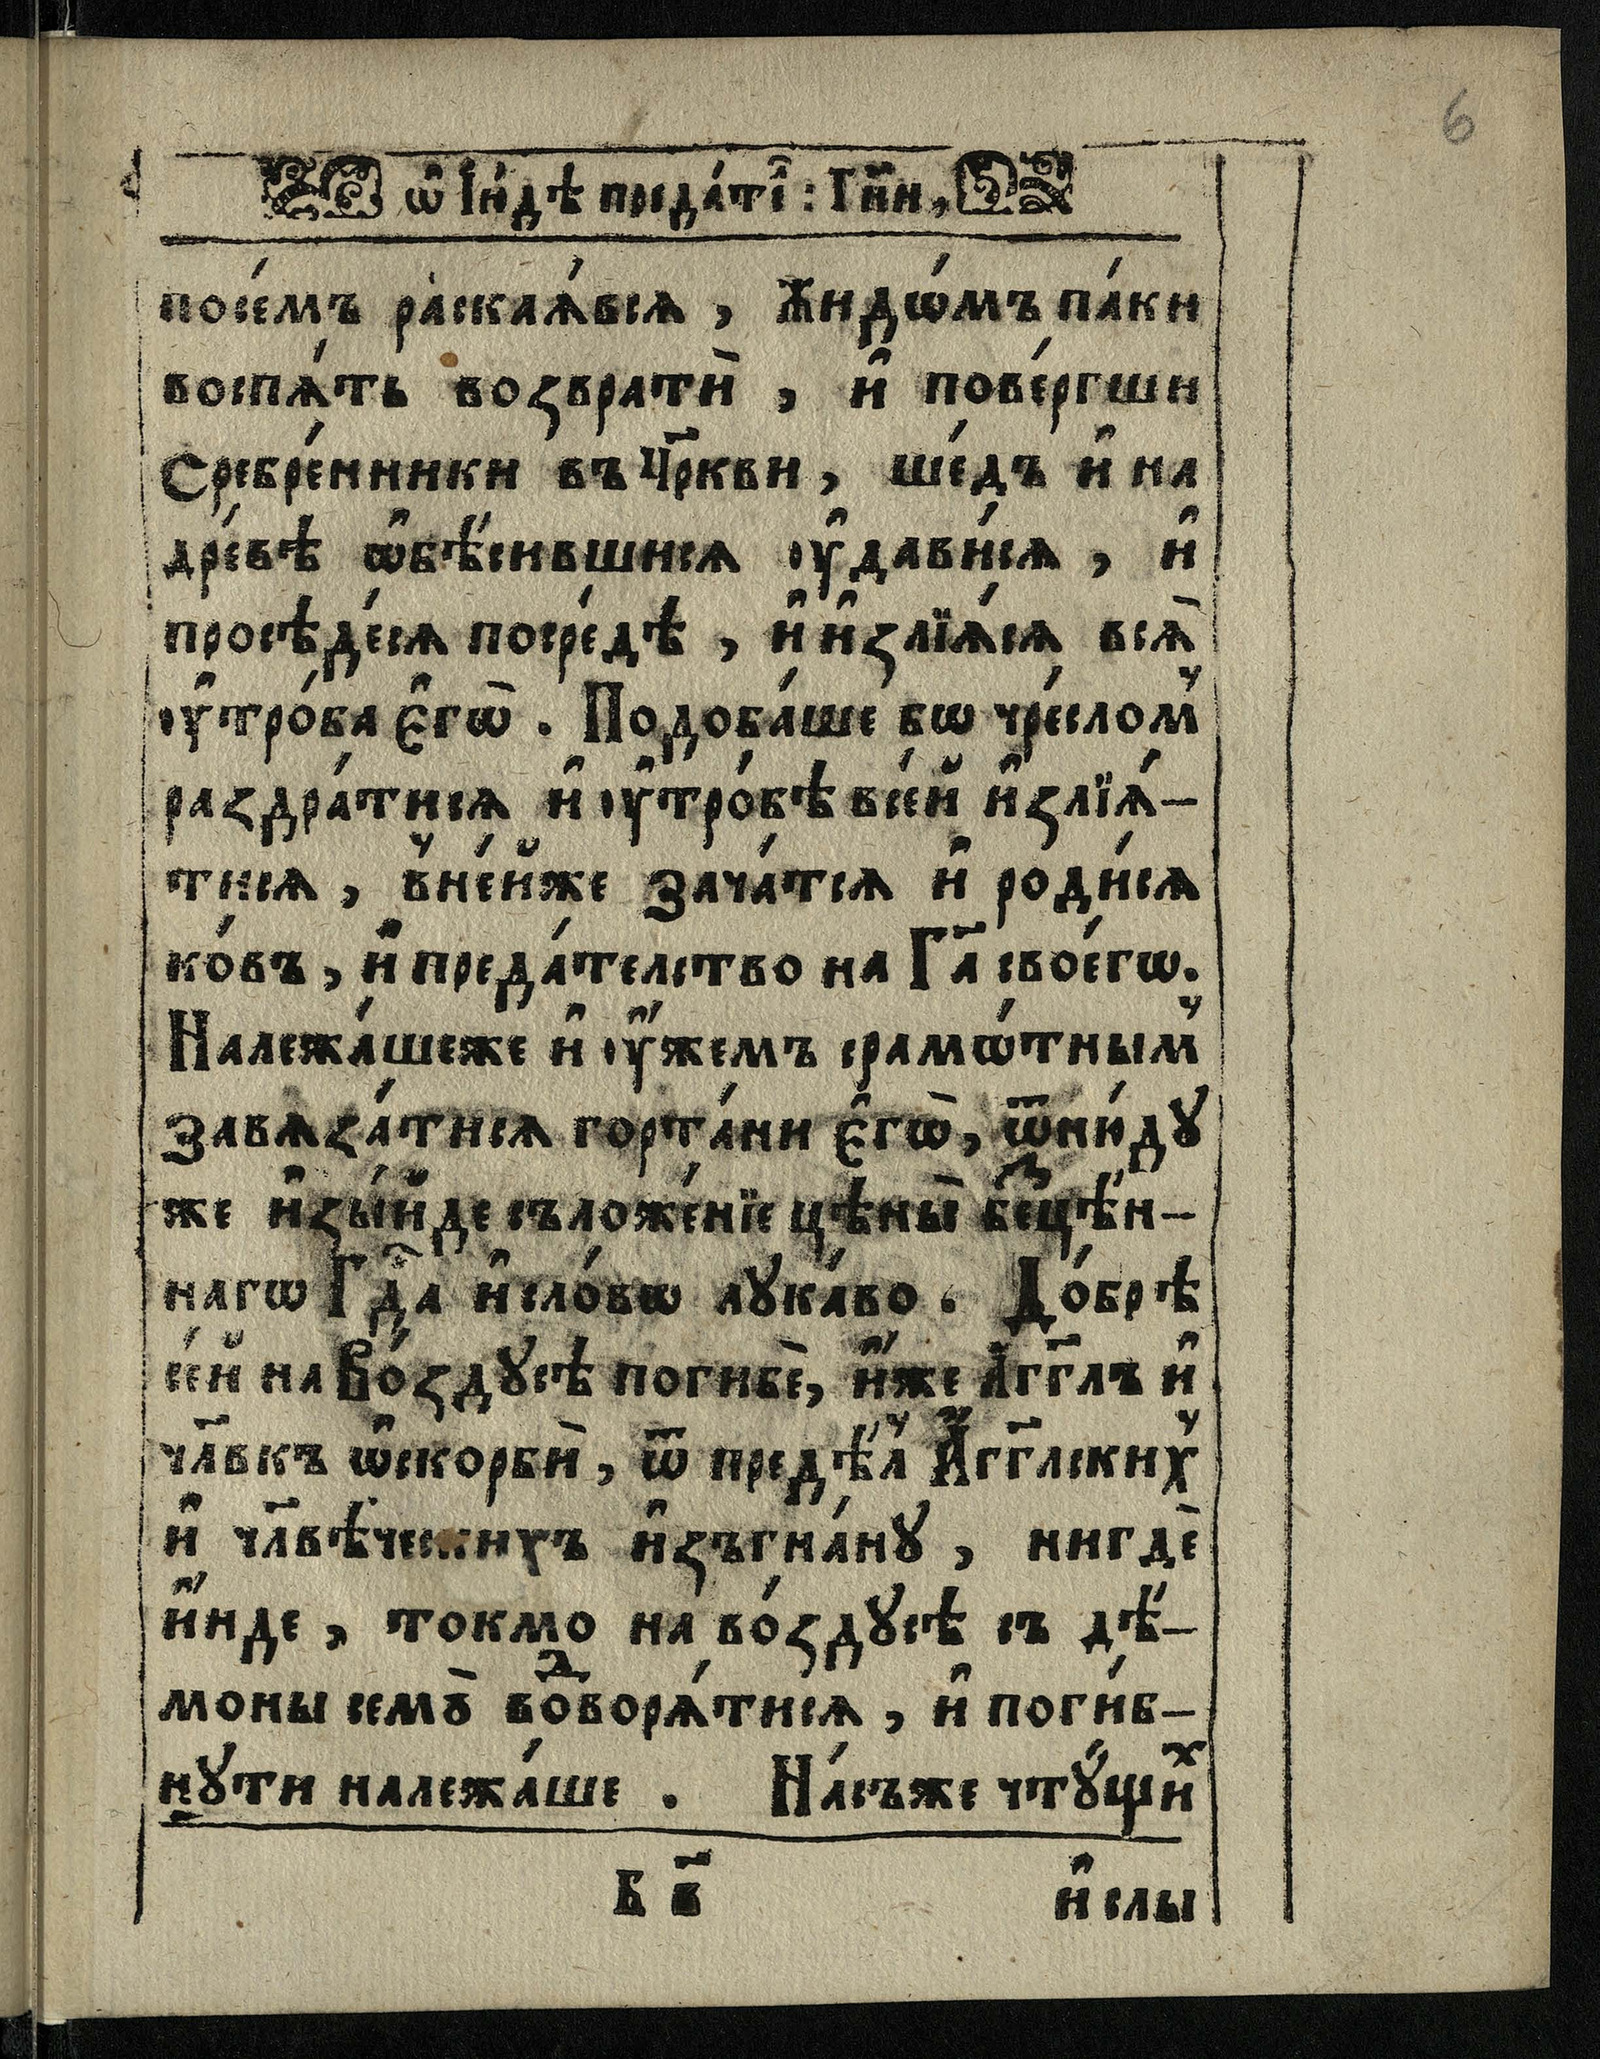 6
ѡ҆ І҆ю́дѣ преда́тї: Гн҃и,
посе́мъ раскаѧ́всѧ, Жидѡ́мъ па́ки
воспѧ́ть воꙁвратѝ, и҆ пове́ргши
Сребре́нники въ Цр҃кви, ше́дъ и҆ на
дре́вѣ ѡ҆бѣ́сившисѧ ᲂу҆дави́сѧ, и҆
просѣ́десѧ посре́дѣ, и҆ и҆ꙁлїѧ́сѧ всѧ̀
ᲂу҆тро́ба є҆гѡ̀. Подоба́ше бѡ чре́слом̾
раꙁдра́тисѧ и҆ ᲂу҆тро́бѣ все́й и҆ꙁлїѧ́-
тисѧ, в̾не́йже зача́тсѧ и҆ роди́сѧ
ко́въ, и҆ преда́телство на Гд҃а своегѡ.
Належа́шеже и҆ ᲂу҆́жемъ срамѡ́тным̾
завѧꙁа́тисѧ горта́ни є҆гѡ̀, ѿню́дꙋ
же и҆ꙁы́йде съложе́нїе цѣны̀ беⷥцѣ́н-
нагѡ Гд҃а и҆ сло́вѡ лꙋка́во. До́брѣ
се́й на Во́ꙁдꙋсѣ погибѐ, и҆́же А҆гг҃лъ и҆
чл҃вкъ ѡ҆скорбѝ, ѿ предѣ́л̾ А҆́гг҃лских̾
и҆ чл҃вѣ́ческихъ и҆ꙁъгна́нꙋ, нигдѐ
и҆́нде, токмо на во́ꙁдꙋсѣ съ дѣ́-
моны семꙋ̀ воⷣворѧ́тисѧ, и҆ поги́б-
нꙋти належа́ше. На́съже чтꙋ́щиⷯ
Б в҃
и҆ слы